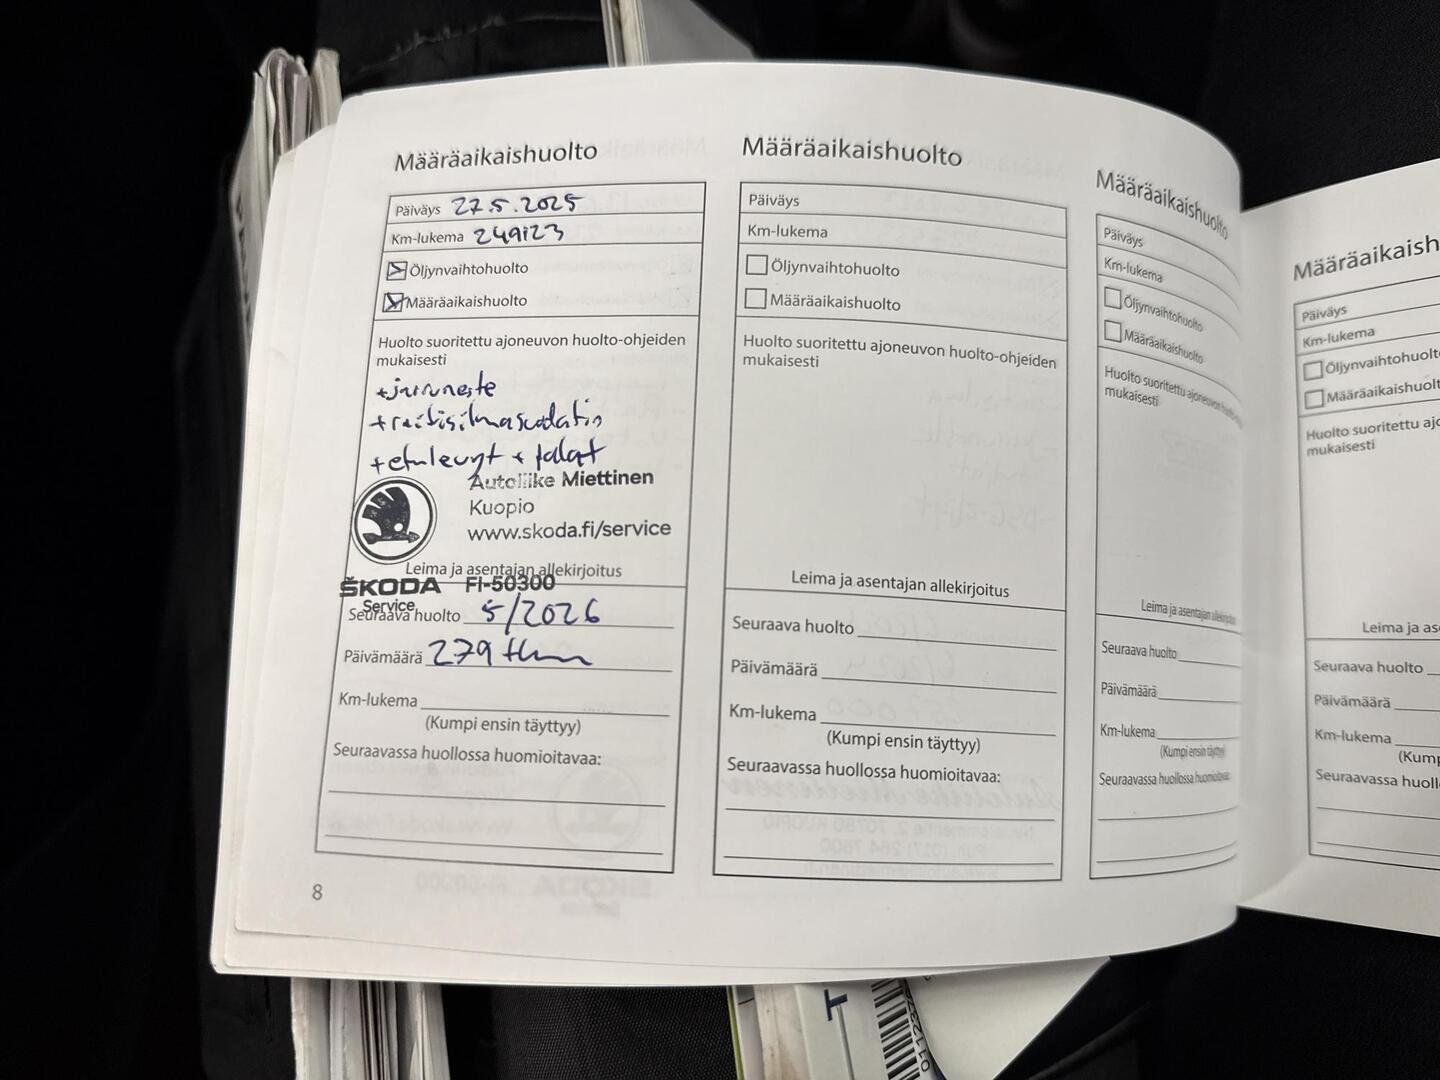 Määräaikaishuolto
Päiväys 27.5.2025
Km-lukema 249123
Öljynvaihtohuolto
Määräaikaishuolto
Huolto suoritettu ajoneuvon huolto-ohjeiden
mukaisesti
+jarruneste
+raitisilmasuodatin
+etulevyt + palat
Autoliike Miettinen
Kuopio
www.skoda.fi/service
Leima ja asentajan allekirjoitus
ŠKODA FI-50300
Service
Seuraava huolto 5/2026
Päivämäärä 279 tkm
Km-lukema
(Kumpi ensin täyttyy)
Seuraavassa huollossa huomioitavaa:
8
Määräaikaishuolto
Päiväys
Km-lukema
Öljynvaihtohuolto
Määräaikaishuolto
Huolto suoritettu ajoneuvon huolto-ohjeiden
mukaisesti
Leima ja asentajan allekirjoitus
Seuraava huolto
Päivämäärä
Km-lukema
(Kumpi ensin täyttyy)
Seuraavassa huollossa huomioitavaa:
Määräaikaishuolto
Päiväys
Km-lukema
Öljynvaihtohuolto
Määräaikaishuolto
Huolto suoritettu ajoneuvon
mukaisesti
Leima ja asentajan
Seuraava huolto
Päivämäärä
Km-lukema
(Kumpi ensin täyttyy)
Seuraavassa huollossa huomioitavaa:
Määräaikaish
Päiväys
Km-lukema
Öljynvaihtohuolt
Määräaikaishuolt
Huolto suoritettu ajo
mukaisesti
Leima ja as
Seuraava huolto
Päivämäärä
Km-lukema
(Kump
Seuraavassa huoll
T